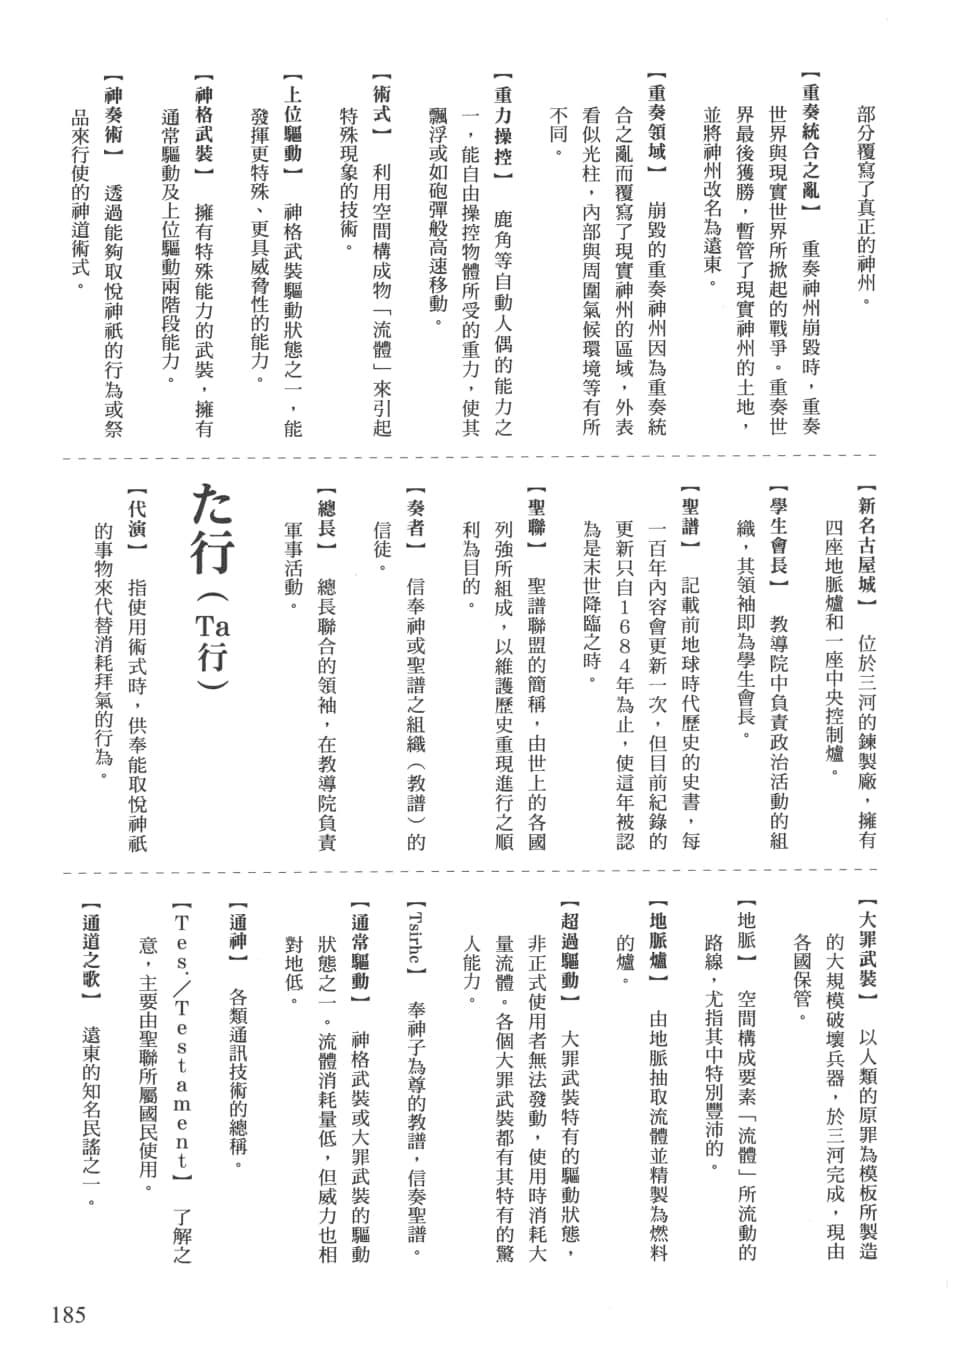 部分覆寫了真正的神州。
【重奏統合之亂】　重奏神州崩毀時，重奏
世界與現實世界所掀起的戰爭。重奏世
界最後獲勝，暫管了現實神州的土地，
並將神州改名為遠東。
【重奏領域】　崩毀的重奏神州因為重奏統
合之亂而覆寫了現實神州的區域，外表
看似光柱，內部與周圍氣候環境等有所
不同。
【重力操控】　鹿角等自動人偶的能力之
一，能自由操控物體所受的重力，使其
飄浮或如砲彈般高速移動。
【術式】　利用空間構成物「流體」來引起
特殊現象的技術。
【上位驅動】　神格武裝驅動狀態之一，能
發揮更特殊、更具威脅性的能力。
【神格武裝】　擁有特殊能力的武裝，擁有
通常驅動及上位驅動兩階段能力。
【神奏術】　透過能夠取悅神祇的行為或祭
品來行使的神道術式。
【新名古屋城】　位於三河的鍊製廠，擁有
四座地脈爐和一座中央控制爐。
【學生會長】　教導院中負責政治活動的組
織，其領袖即為學生會長。
【聖譜】　記載前地球時代歷史的史書，每
一百年內容會更新一次，但目前紀錄的
更新只自1684年為止，使這年被認
為是末世降臨之時。
【聖聯】　聖譜聯盟的簡稱，由世上的各國
列強所組成，以維護歷史重現進行之順
利為目的。
【奏者】　信奉神或聖譜之組織（教譜）的
信徒。
【總長】　總長聯合的領袖，在教導院負責
軍事活動。
た行（Ta行）
【代演】　指使用術式時，供奉能取悅神祇
的事物來代替消耗拜氣的行為。
【大罪武裝】　以人類的原罪為模板所製造
的大規模破壞兵器，於三河完成，現由
各國保管。
【地脈】　空間構成要素「流體」所流動的
路線，尤指其中特別豐沛的。
【地脈爐】　由地脈抽取流體並精製為燃料
的爐。
【超過驅動】　大罪武裝特有的驅動狀態，
非正式使用者無法發動，使用時消耗大
量流體。各個大罪武裝都有其特有的驚
人能力。
【Tsirhc】　奉神子為尊的教譜，信奏聖譜。
【通常驅動】　神格武裝或大罪武裝的驅動
狀態之一。流體消耗量低，但威力也相
對地低。
【通神】　各類通訊技術的總稱。
【Tes.／Testament】　了解之
意，主要由聖聯所屬國民使用。
【通道之歌】　遠東的知名民謠之一。
185